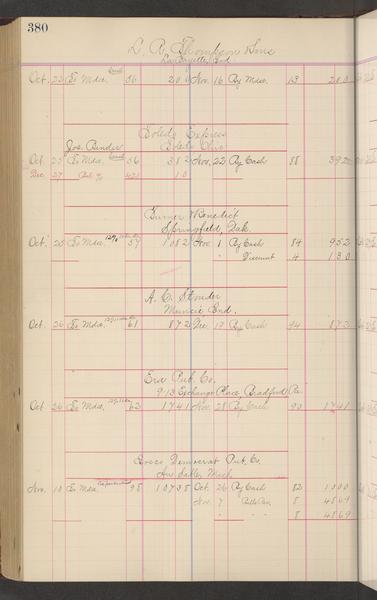 380
L. A. Thompson & Sons
LaFayette, Ind.
Oct. 23 To Mdse. 56 200 Nov. 16 By Mdse. 13 200
Toledo Express
Jos. Bender Toledo Ohio
Oct 25 To Mdse. 56 382 Nov. 22 By Cash 88 392
Dec. 27 421 10
Turner & Benedict
Springfield, Dak.
Oct. 25 To Mdse. 57 1082 Nov. 1 By Cash 84 952
" Discount 4 130
A. C. Stouder
Muncie Ind.
Oct. 26 To Mdse. 61 872 Dec. 19 By Cash 94 872
Era Pub. Co.
9-13 Exchange Place Bradford, Pa.
Oct. 26 To Mdse. 62 1741 Nov. 28 By Cash 90 1741
Democrat Pub. Co.
Mich.
Nov. 10 To Mdse. 98 10738 Oct. 26 By Cash 82 1000
Nov. 7 Bills Rec. 8 4869
" " " 8 4869